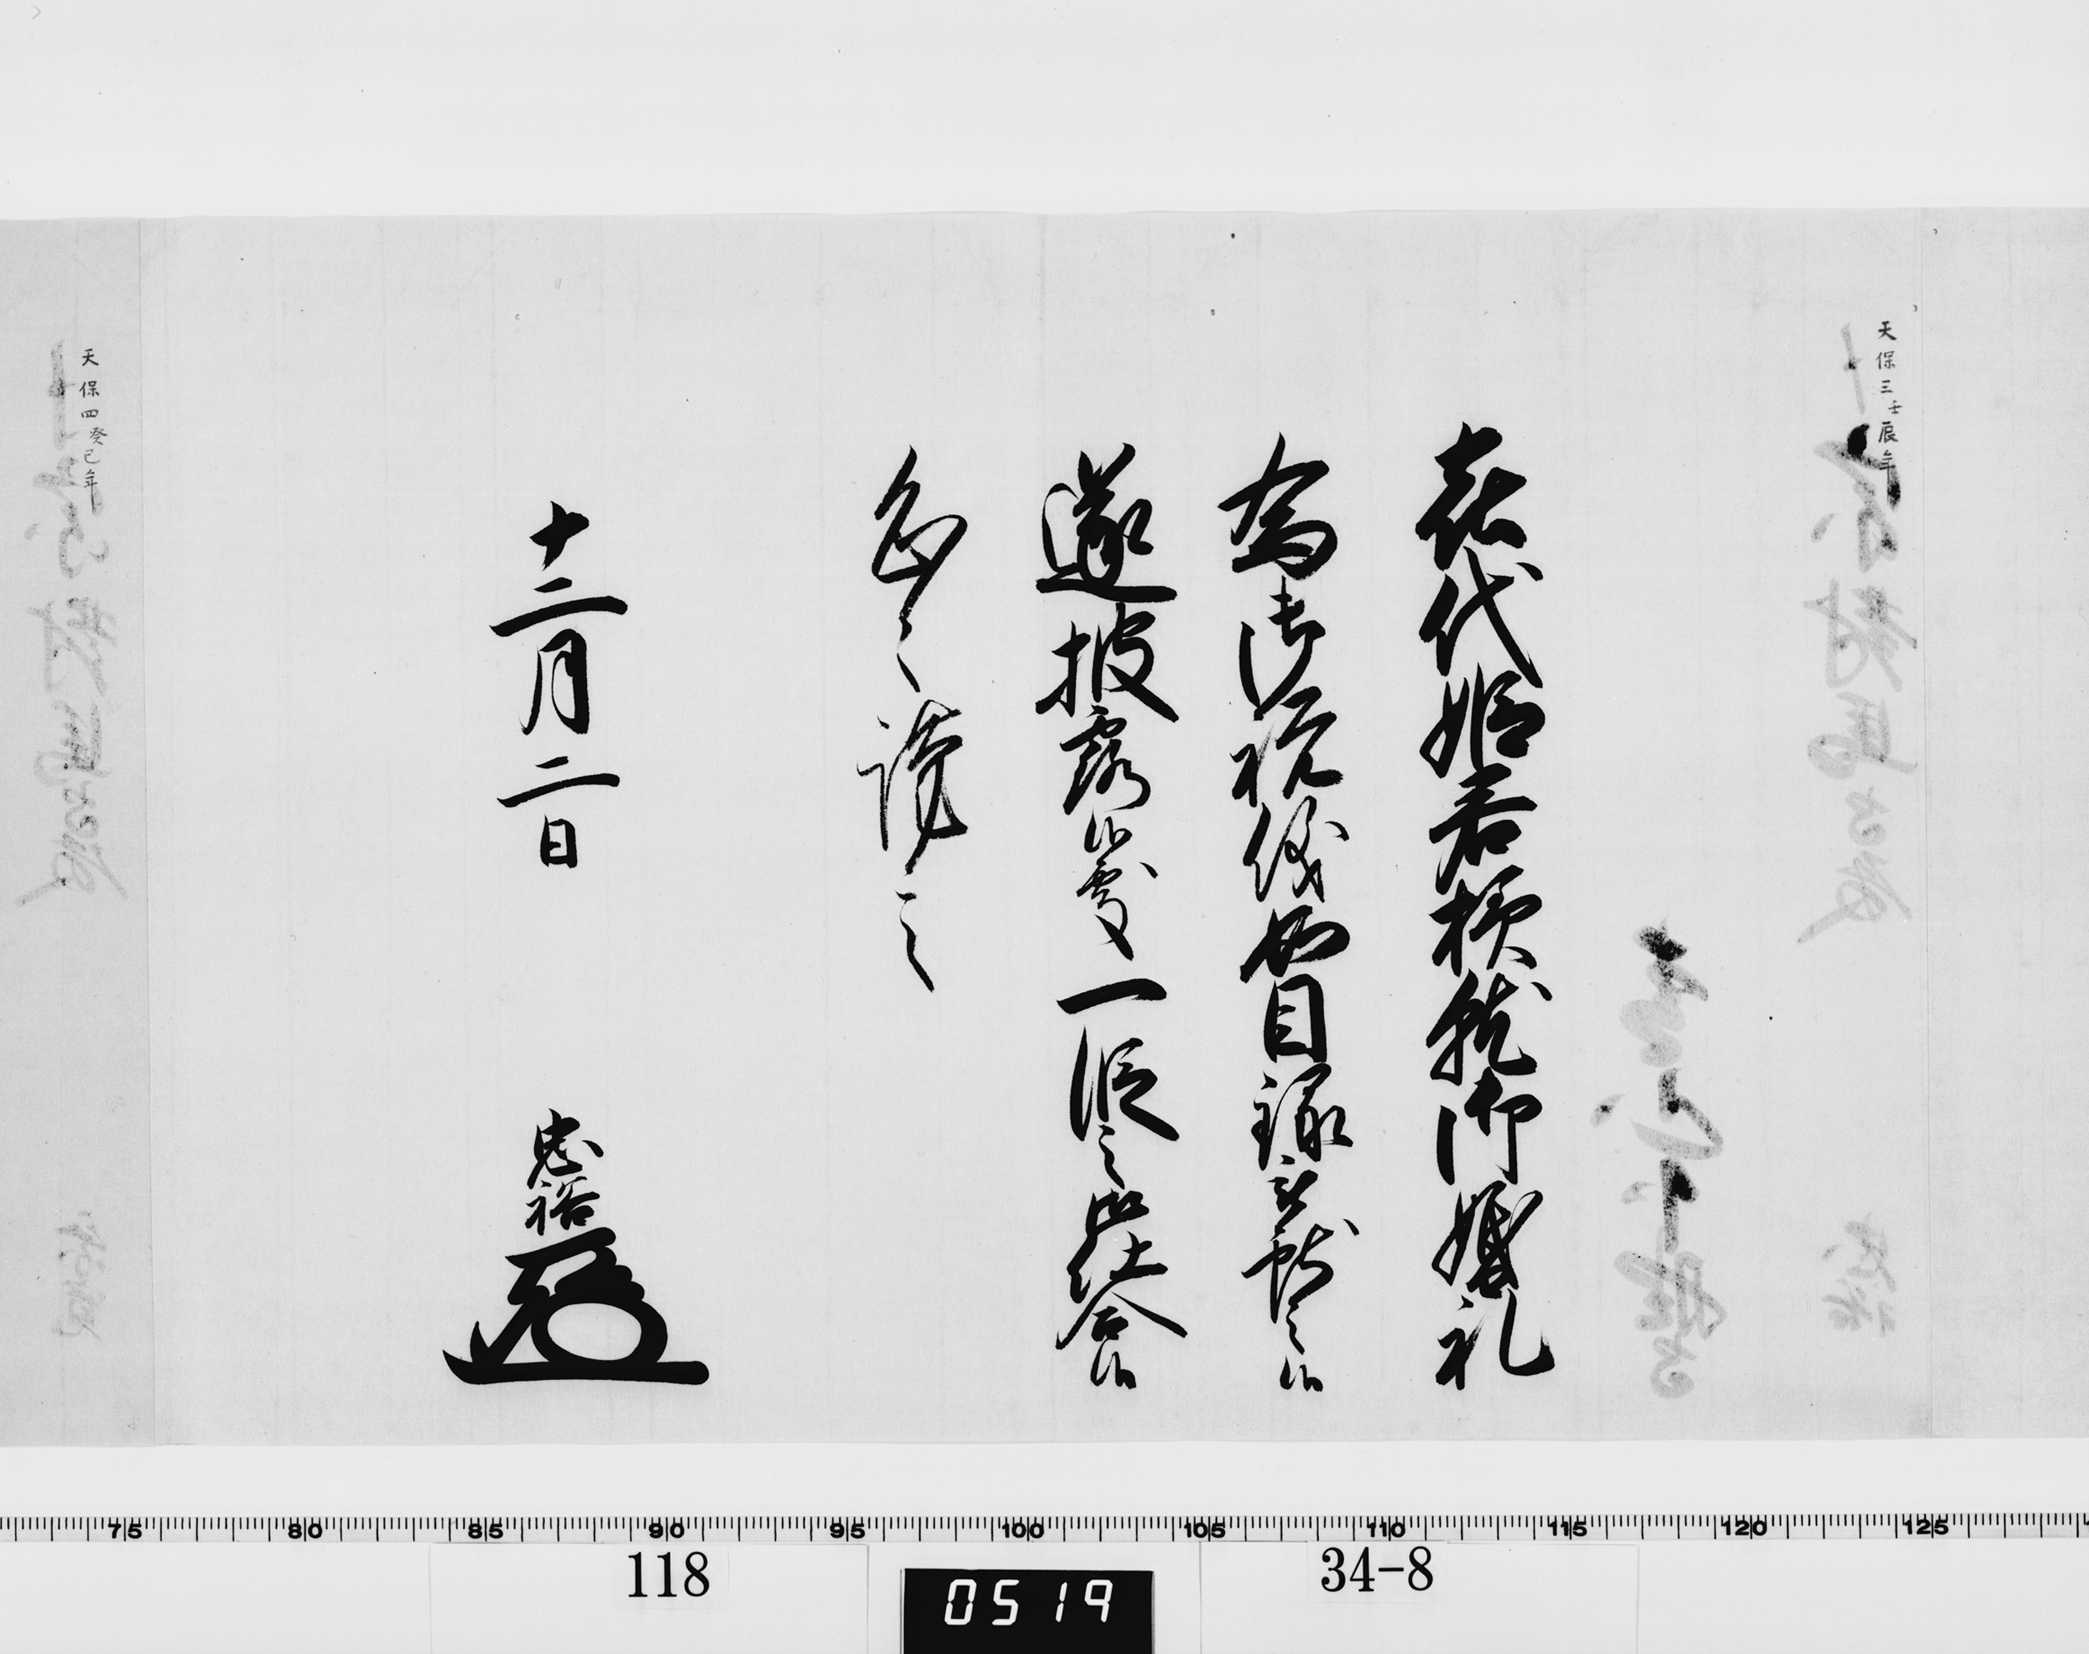 天保三壬辰年
喜代姫君様就御婚礼
為御祝儀如目録被献之候
遂披露候處一段之御仕合候
恐々謹言
十二月二日
忠裕
天保四癸巳年
75 80 85 90 95 100 105 110 115 120 125
118
0519
34-8